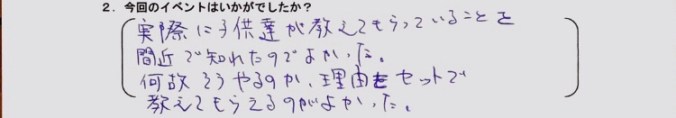 2. 今回のイベントはいかがでしたか?
実際に子供達が教えてもらっていることを
間近で知れたのでよかった。
何故そうやるのか、理由をセットで
教えてもらえるのがよかった。